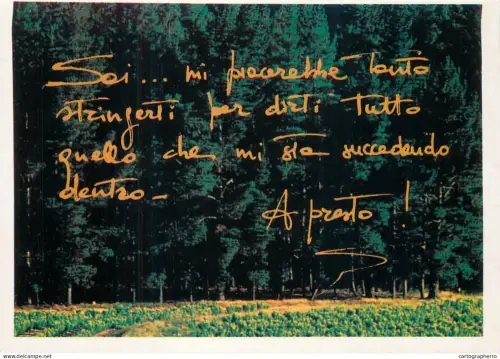 Sai... mi piacerebbe tanto
stringerti per dirti tutto
quello che mi sta succedendo
dentro-
A presto!
www.delcampe.net
cartographerro